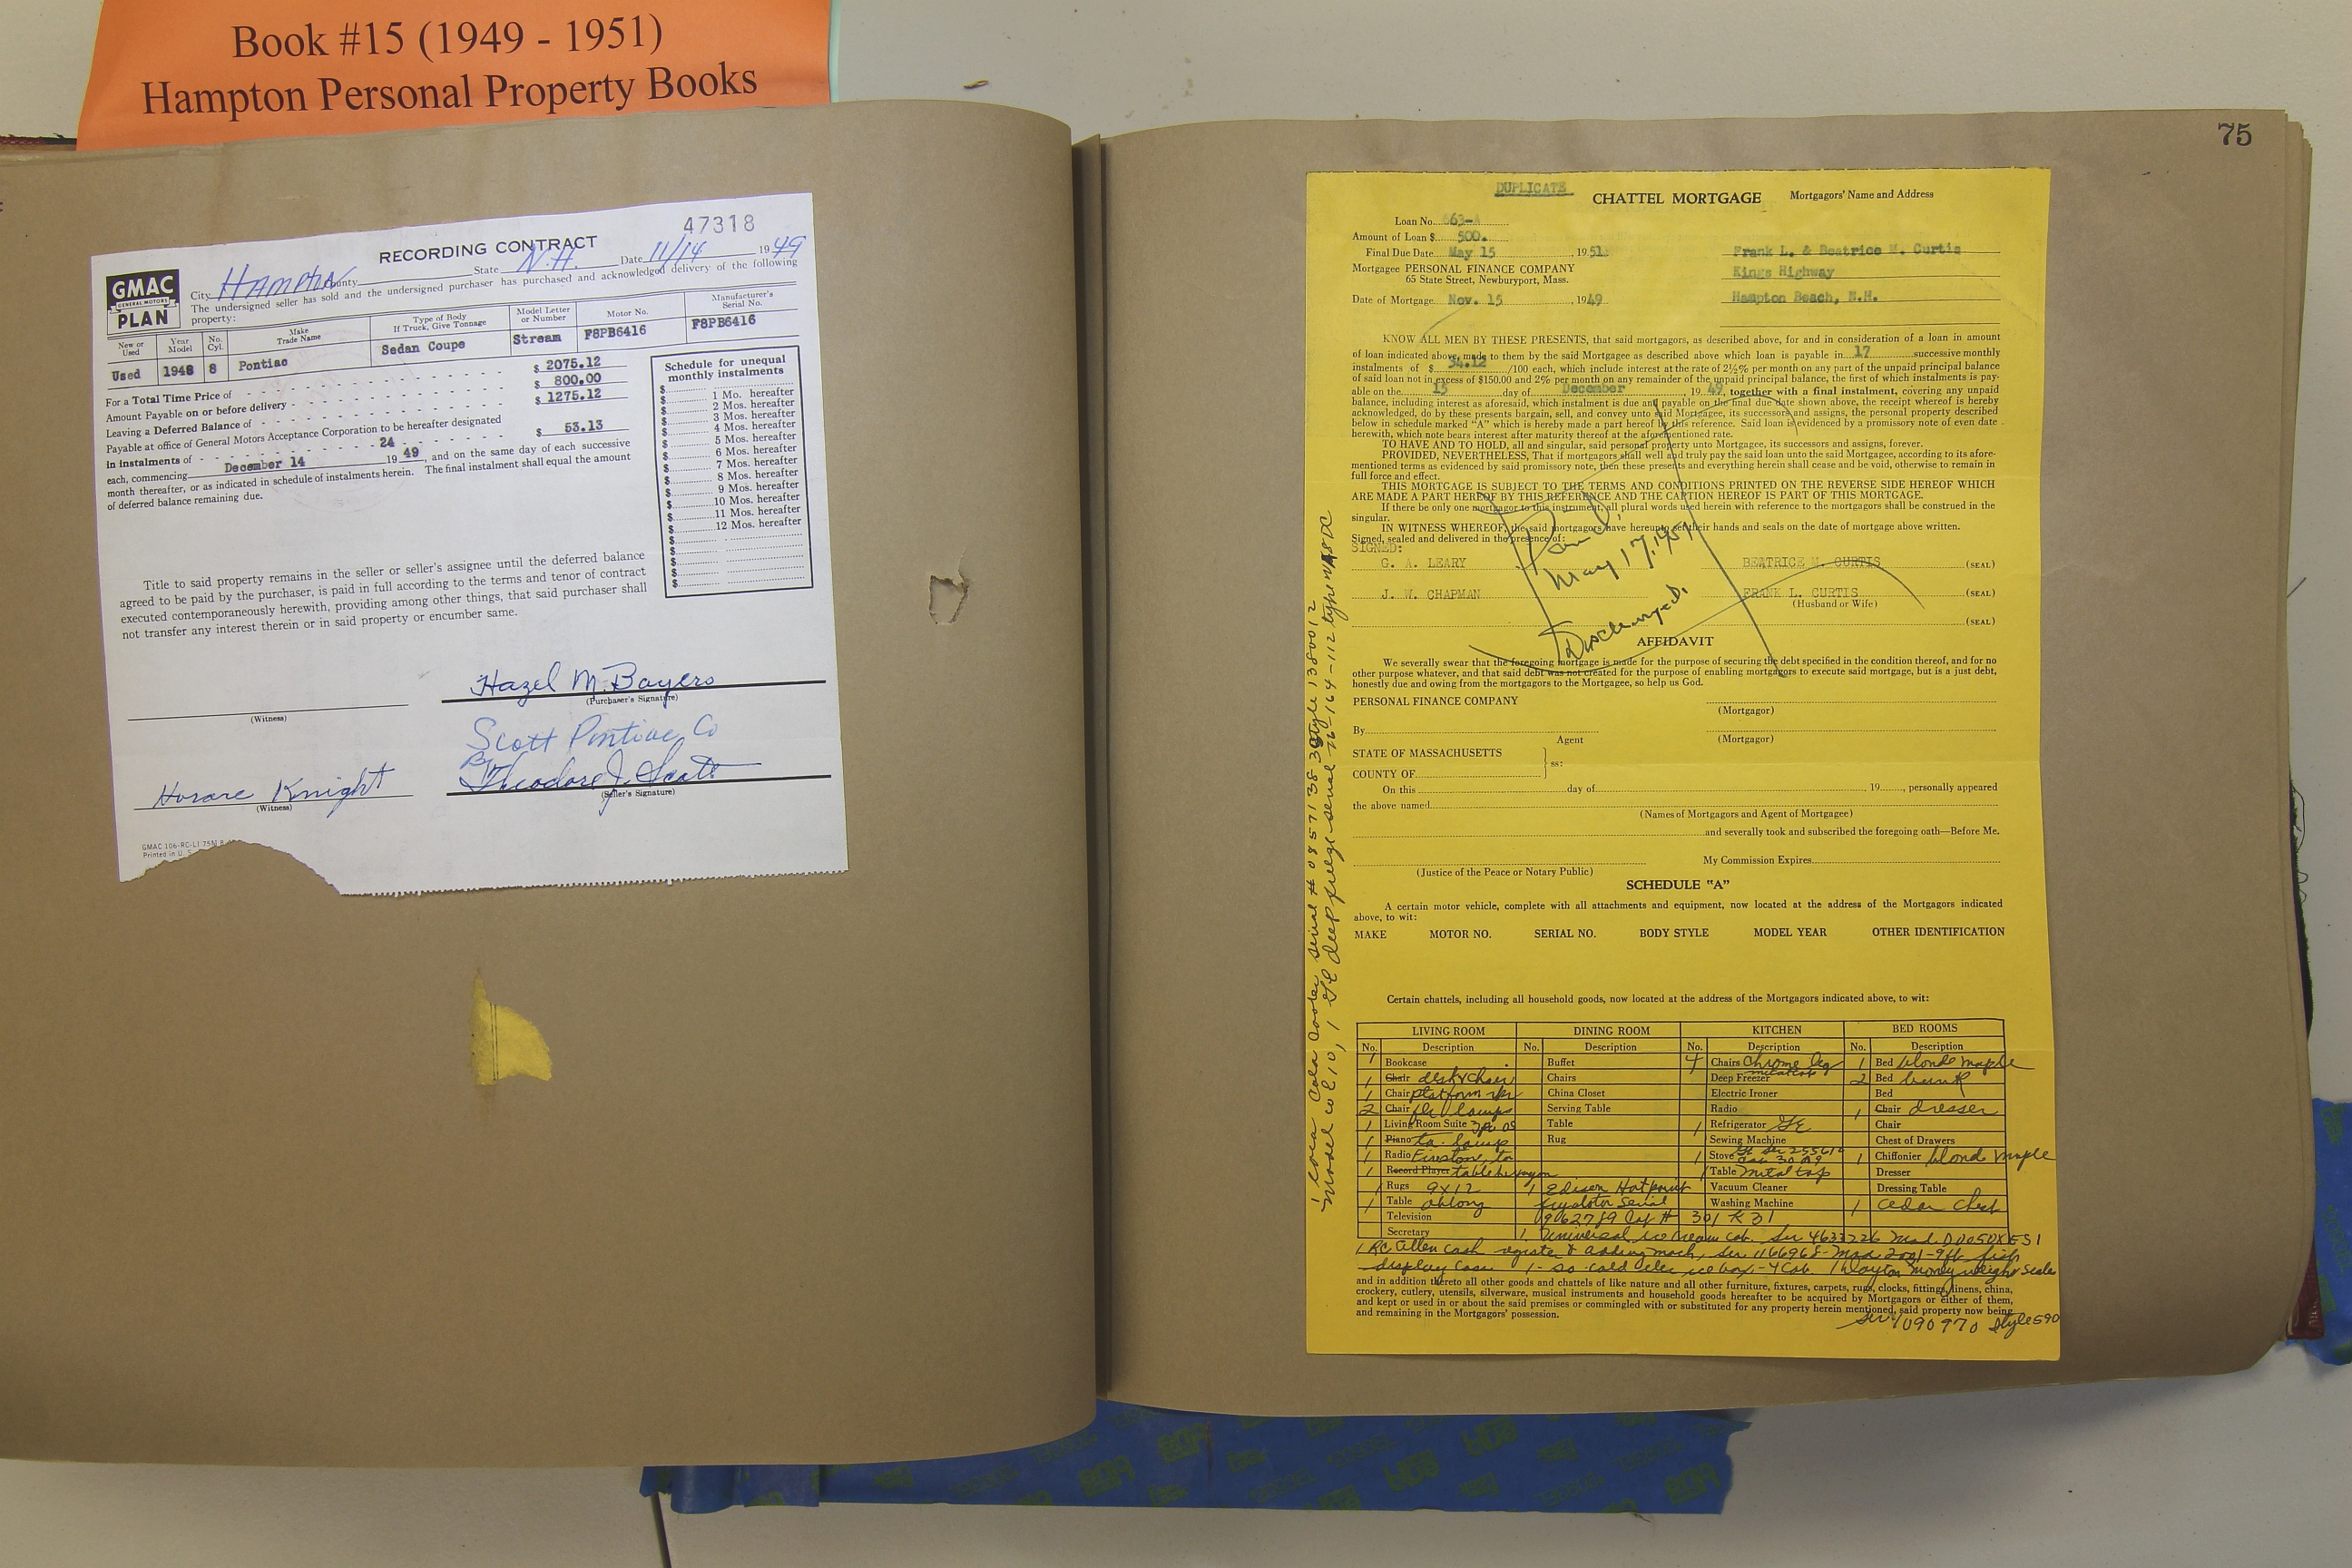 Book #15 (1949 - 1951)
Hampton Personal Property Books
47318
RECORDING CONTRACT
GMAC
GENERAL MOTORS
PLAN
City HAMPTON County State N.H. Date 11/14 1949
The undersigned seller has sold and the undersigned purchaser has purchased and acknowledged delivery of the following
property:
New or Used Year Model No. Cyl. Make Trade Name Type of Body If Truck, Give Tonnage Model Letter or Number Motor No. Manufacturer's Serial No.
Used 1948 8 Pontiac Sedan Coupe Stream F8PB6416 F8PB6416
For a Total Time Price of $ 2075.12
Amount Payable on or before delivery $ 800.00
Leaving a Deferred Balance of $ 1275.12
Payable at office of General Motors Acceptance Corporation to be hereafter designated
in instalments of 24 $ 53.13
each, commencing December 14 1949, and on the same day of each successive
month thereafter, or as indicated in schedule of instalments herein. The final instalment shall equal the amount
of deferred balance remaining due.
Schedule for unequal
monthly instalments
$
$ 1 Mo. hereafter
$ 2 Mos. hereafter
$ 3 Mos. hereafter
$ 4 Mos. hereafter
$ 5 Mos. hereafter
$ 6 Mos. hereafter
$ 7 Mos. hereafter
$ 8 Mos. hereafter
$ 9 Mos. hereafter
$ 10 Mos. hereafter
$ 11 Mos. hereafter
$ 12 Mos. hereafter
Title to said property remains in the seller or seller's assignee until the deferred balance
agreed to be paid by the purchaser, is paid in full according to the terms and tenor of contract
executed contemporaneously herewith, providing among other things, that said purchaser shall
not transfer any interest therein or in said property or encumber same.
Hazel M. Bayers
(Witness) (Purchaser's Signature)
Scott Pontiac Co
By Theodore J. Scott
Horace Knight
(Witness) (Seller's Signature)
GMAC 106-RC-L1 75M
Printed in U. S.
75
DUPLICATE
CHATTEL MORTGAGE Mortgagors' Name and Address
Loan No. 663-A
Amount of Loan $ 500.
Final Due Date May 15, 1951
Mortgagee PERSONAL FINANCE COMPANY
65 State Street, Newburyport, Mass.
Date of Mortgage Nov. 15 1949
Frank L. & Beatrice M. Curtis
Kings Highway
Hampton Beach, N.H.
KNOW ALL MEN BY THESE PRESENTS, that said mortgagors, as described above, for and in consideration of a loan in amount
of loan indicated above, made to them by the said Mortgagee as described above which loan is payable in 17 successive monthly
instalments of $ 34.12 /100 each, which include interest at the rate of 2½% per month on any part of the unpaid principal balance
of said loan not in excess of $150.00 and 2% per month on any remainder of the unpaid principal balance, the first of which instalments is pay-
able on the 15 day of December 1949, together with a final instalment, covering any unpaid
balance, including interest as aforesaid, which instalment is due and payable on the final due date shown above, the receipt whereof is hereby
acknowledged, do by these presents bargain, sell, and convey unto said Mortgagee, its successors and assigns, the personal property described
below in schedule marked "A" which is hereby made a part hereof by this reference. Said loan is evidenced by a promissory note of even date
herewith, which note bears interest after maturity thereof at the aforementioned rate.
TO HAVE AND TO HOLD, all and singular, said personal property unto Mortgagee, its successors and assigns, forever.
PROVIDED, NEVERTHELESS, That if mortgagors shall well and truly pay the said loan unto the said Mortgagee, according to its afore-
mentioned terms as evidenced by said promissory note, then these presents and everything herein shall cease and be void, otherwise to remain in
full force and effect.
THIS MORTGAGE IS SUBJECT TO THE TERMS AND CONDITIONS PRINTED ON THE REVERSE SIDE HEREOF WHICH
ARE MADE A PART HEREOF BY THIS REFERENCE AND THE CAPTION HEREOF IS PART OF THIS MORTGAGE.
If there be only one mortgagor to this instrument, all plural words used herein with reference to the mortgagors shall be construed in the
singular.
IN WITNESS WHEREOF, the said mortgagors have hereunto set their hands and seals on the date of mortgage above written.
Signed, sealed and delivered in the presence of:
SIGNED:
G. A. LEARY BEATRICE M. CURTIS (SEAL)
J. W. CHAPMAN FRANK L. CURTIS (SEAL)
(Husband or Wife)
(SEAL)
Paid
May 17, 1951
Discharged.
AFFIDAVIT
We severally swear that the foregoing mortgage is made for the purpose of securing the debt specified in the condition thereof, and for no
other purpose whatever, and that said debt was not created for the purpose of enabling mortgagors to execute said mortgage, but is a just debt,
honestly due and owing from the mortgagors to the Mortgagee, so help us God.
PERSONAL FINANCE COMPANY
(Mortgagor)
By
Agent (Mortgagor)
STATE OF MASSACHUSETTS
ss:
COUNTY OF
On this day of 19, personally appeared
the above named
(Names of Mortgagors and Agent of Mortgagee)
and severally took and subscribed the foregoing oath—Before Me.
My Commission Expires
(Justice of the Peace or Notary Public)
SCHEDULE "A"
A certain motor vehicle, complete with all attachments and equipment, now located at the address of the Mortgagors indicated
above, to wit:
MAKE MOTOR NO. SERIAL NO. BODY STYLE MODEL YEAR OTHER IDENTIFICATION
Certain chattels, including all household goods, now located at the address of the Mortgagors indicated above, to wit:
LIVING ROOM DINING ROOM KITCHEN BED ROOMS
No. Description No. Description No. Description No. Description
1 Bookcase Buffet 4 Chairs Chrome leg 1 Bed blonde maple
1 Chair desk & chair Chairs Deep Freezer 2 Bed bunk
1 Chair platform rkr China Closet Electric Ironer Bed
2 Chair flr lamps Serving Table Radio 1 Chair dresser
1 Living Room Suite 3 pc Table 1 Refrigerator GE Chair
1 Piano ta. lamp Rug Sewing Machine Chest of Drawers
1 Radio Firestone ta 1 Stove 1 Chiffonier blond maple
1 Record Player table 1 Table metal top Dresser
1 Rugs 9x12 1 Edison Hotpoint Vacuum Cleaner Dressing Table
1 Table oblong serial Washing Machine 1 cedar chest
Television 301 K 31
Secretary 1 Universal ice cream cab. Ser 4633226 Mod DD05DXES1
1 RC Allen cash register & adding mach, ser 1166968- Mod 2001-9ft fish
display case 1- so-cold elec ice box - 4 Cab. 1 Dayton moneyweight scale
and in addition thereto all other goods and chattels of like nature and all other furniture, fixtures, carpets, rugs, clocks, fittings, linens, china,
crockery, cutlery, utensils, silverware, musical instruments and household goods hereafter to be acquired by Mortgagors or either of them,
and kept or used in or about the said premises or commingled with or substituted for any property herein mentioned, said property now being
and remaining in the Mortgagors' possession.
ser 1090970 Style 590
1 Coca Cola Cooler serial #
1 GE deep freeze serial